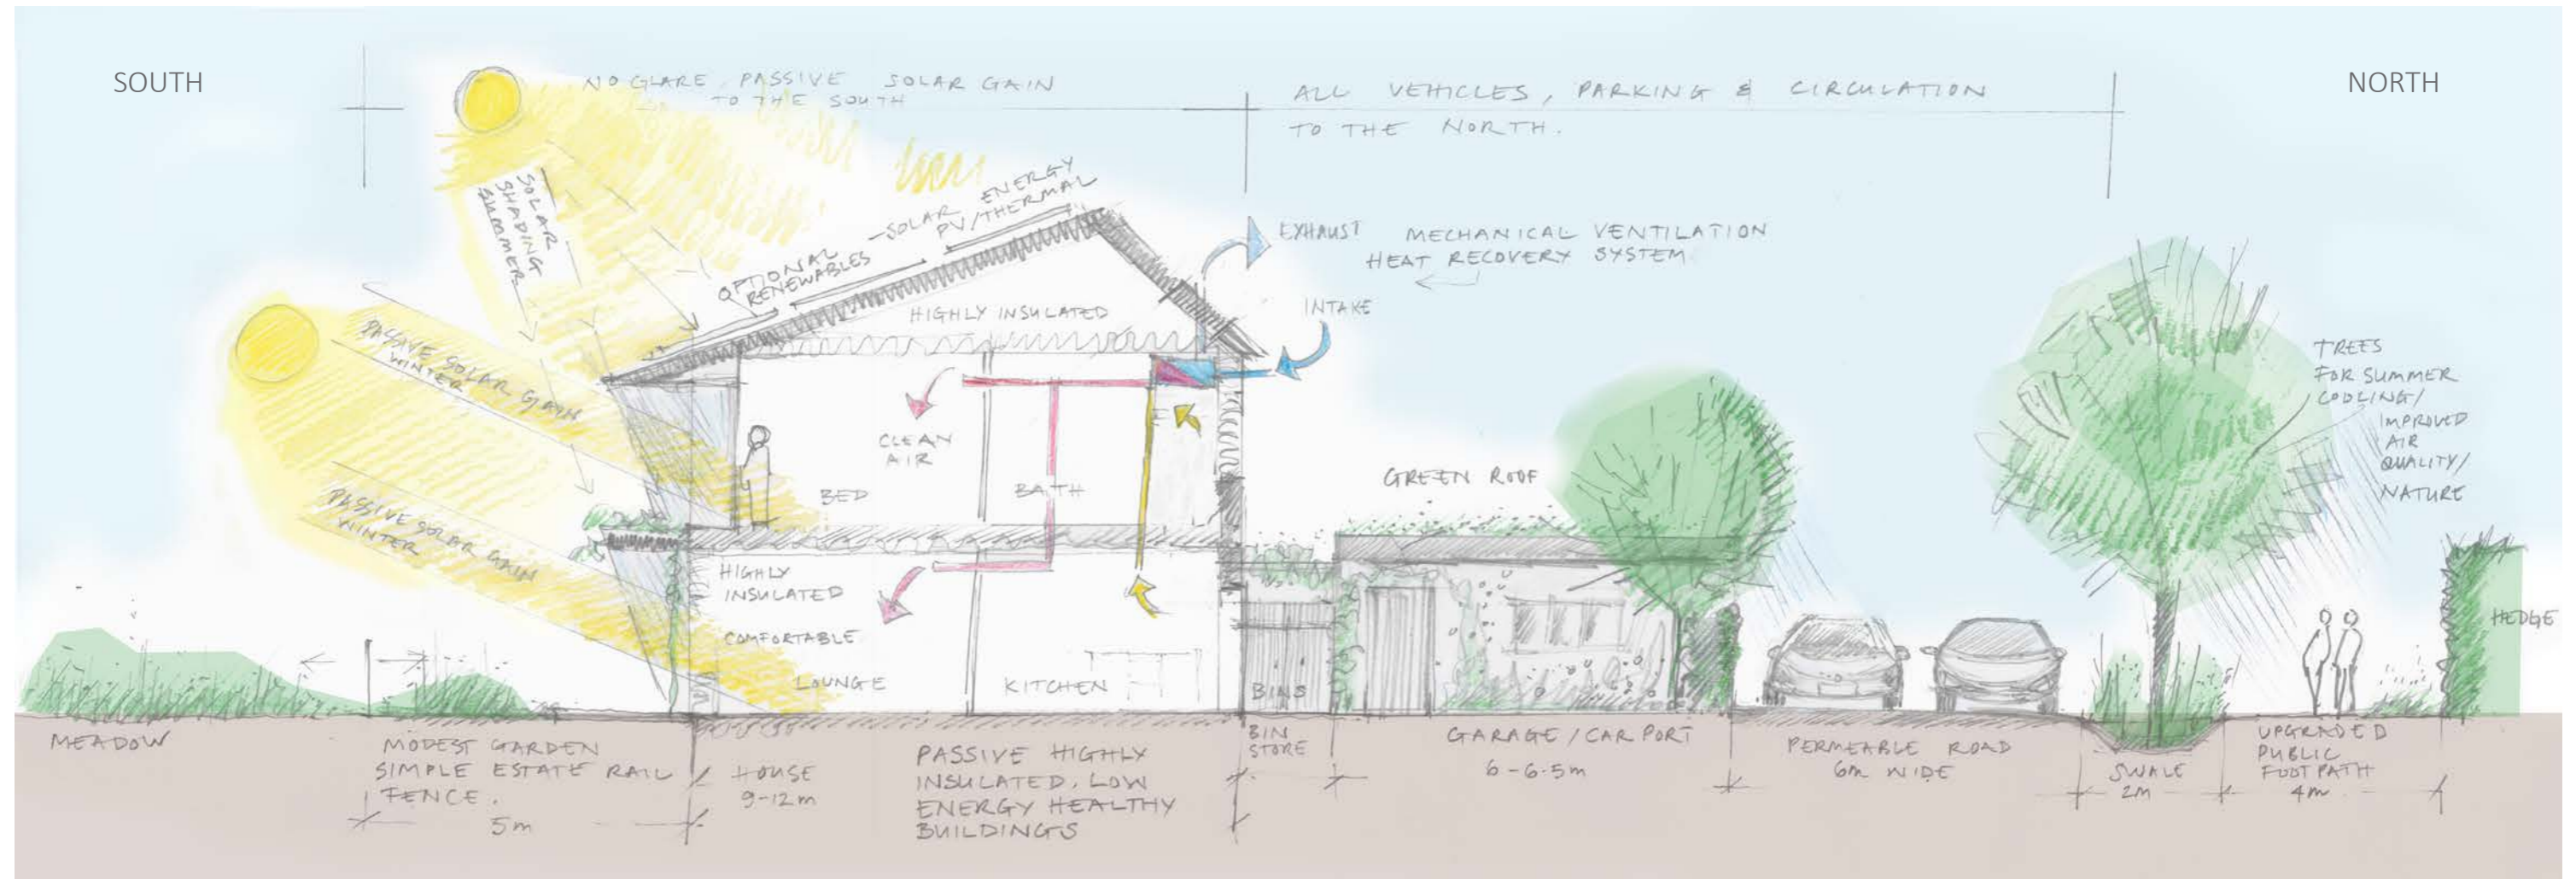 SOUTH
NO GLARE, PASSIVE SOLAR GAIN
TO THE SOUTH
ALL VEHICLES, PARKING & CIRCULATION
TO THE NORTH.
NORTH
SOLAR
SHADING
SUMMER
OPTIONAL
RENEWABLES
-SOLAR ENERGY
PV/THERMAL
EXHAUST
MECHANICAL VENTILATION
HEAT RECOVERY SYSTEM
INTAKE
HIGHLY INSULATED
PASSIVE SOLAR GAIN
WINTER
CLEAN
AIR
BED
BATH
PASSIVE SOLAR GAIN
WINTER
HIGHLY
INSULATED
COMFORTABLE
LOUNGE
KITCHEN
BINS
GREEN ROOF
TREES
FOR SUMMER
COOLING/
IMPROVED
AIR
QUALITY/
NATURE
HEDGE
MEADOW
MODEST GARDEN
SIMPLE ESTATE RAIL
FENCE.
5m
HOUSE
9-12m
PASSIVE HIGHLY
INSULATED, LOW
ENERGY HEALTHY
BUILDINGS
BIN
STORE
GARAGE/CAR PORT
6-6.5m
PERMEABLE ROAD
6m WIDE
SWALE
2M
UPGRADED
PUBLIC
FOOTPATH
4m